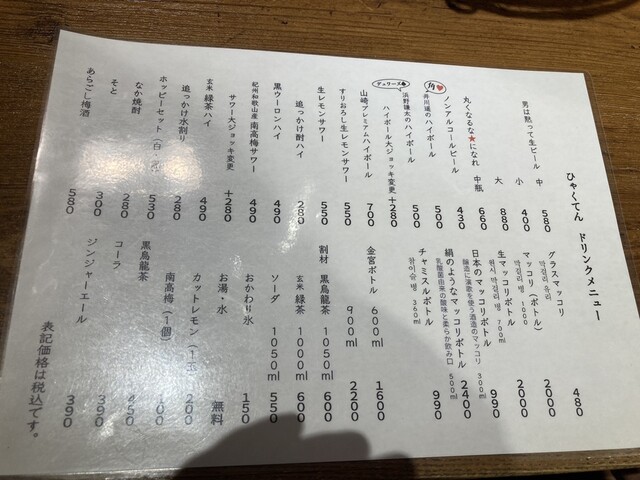 ひゃくてん ドリンクメニュー
男は黙って生ビール 中 580
小 400
大 880
丸くなるな★になれ 中瓶 660
ノンアルコールビール 430
角 井川遥のハイボール 500
デュワーズ 浜野謙太のハイボール 500
ハイボール大ジョッキ変更 +280
山崎プレミアムハイボール 700
すりおろし生レモンサワー 550
生レモンサワー 550
追っかけ酎ハイ 280
黒ウーロンハイ 490
紀州和歌山産 南高梅サワー 490
サワー大ジョッキ変更 +280
玄米緑茶ハイ 490
追っかけ水割り 280
ホッピーセット（白・黒） 530
なか焼酎 280
そと 300
あらごし梅酒 580
グラスマッコリ 480
막걸리 유리
マッコリ（ボトル） 2000
막걸리 병 1000
生マッコリボトル 2000
원시 막걸리병 700ml
日本のマッコリボトル 300ml 990
醸造に演歌を使う酒造のマッコリ
絹のようなマッコリボトル 500ml 2400
乳酸菌由来の酸味と柔らか飲み口
チャミスルボトル 990
참이슬 병 360ml
金宮ボトル 600ml 1600
900ml 2200
割材 黒烏龍茶 1050ml 600
玄米緑茶 1000ml 600
ソーダ 1050ml 550
おかわり氷 150
お湯・水 無料
カットレモン（1玉） 200
南高梅（1個） 100
黒烏龍茶 450
コーラ 390
ジンジャーエール 390
表記価格は税込です。